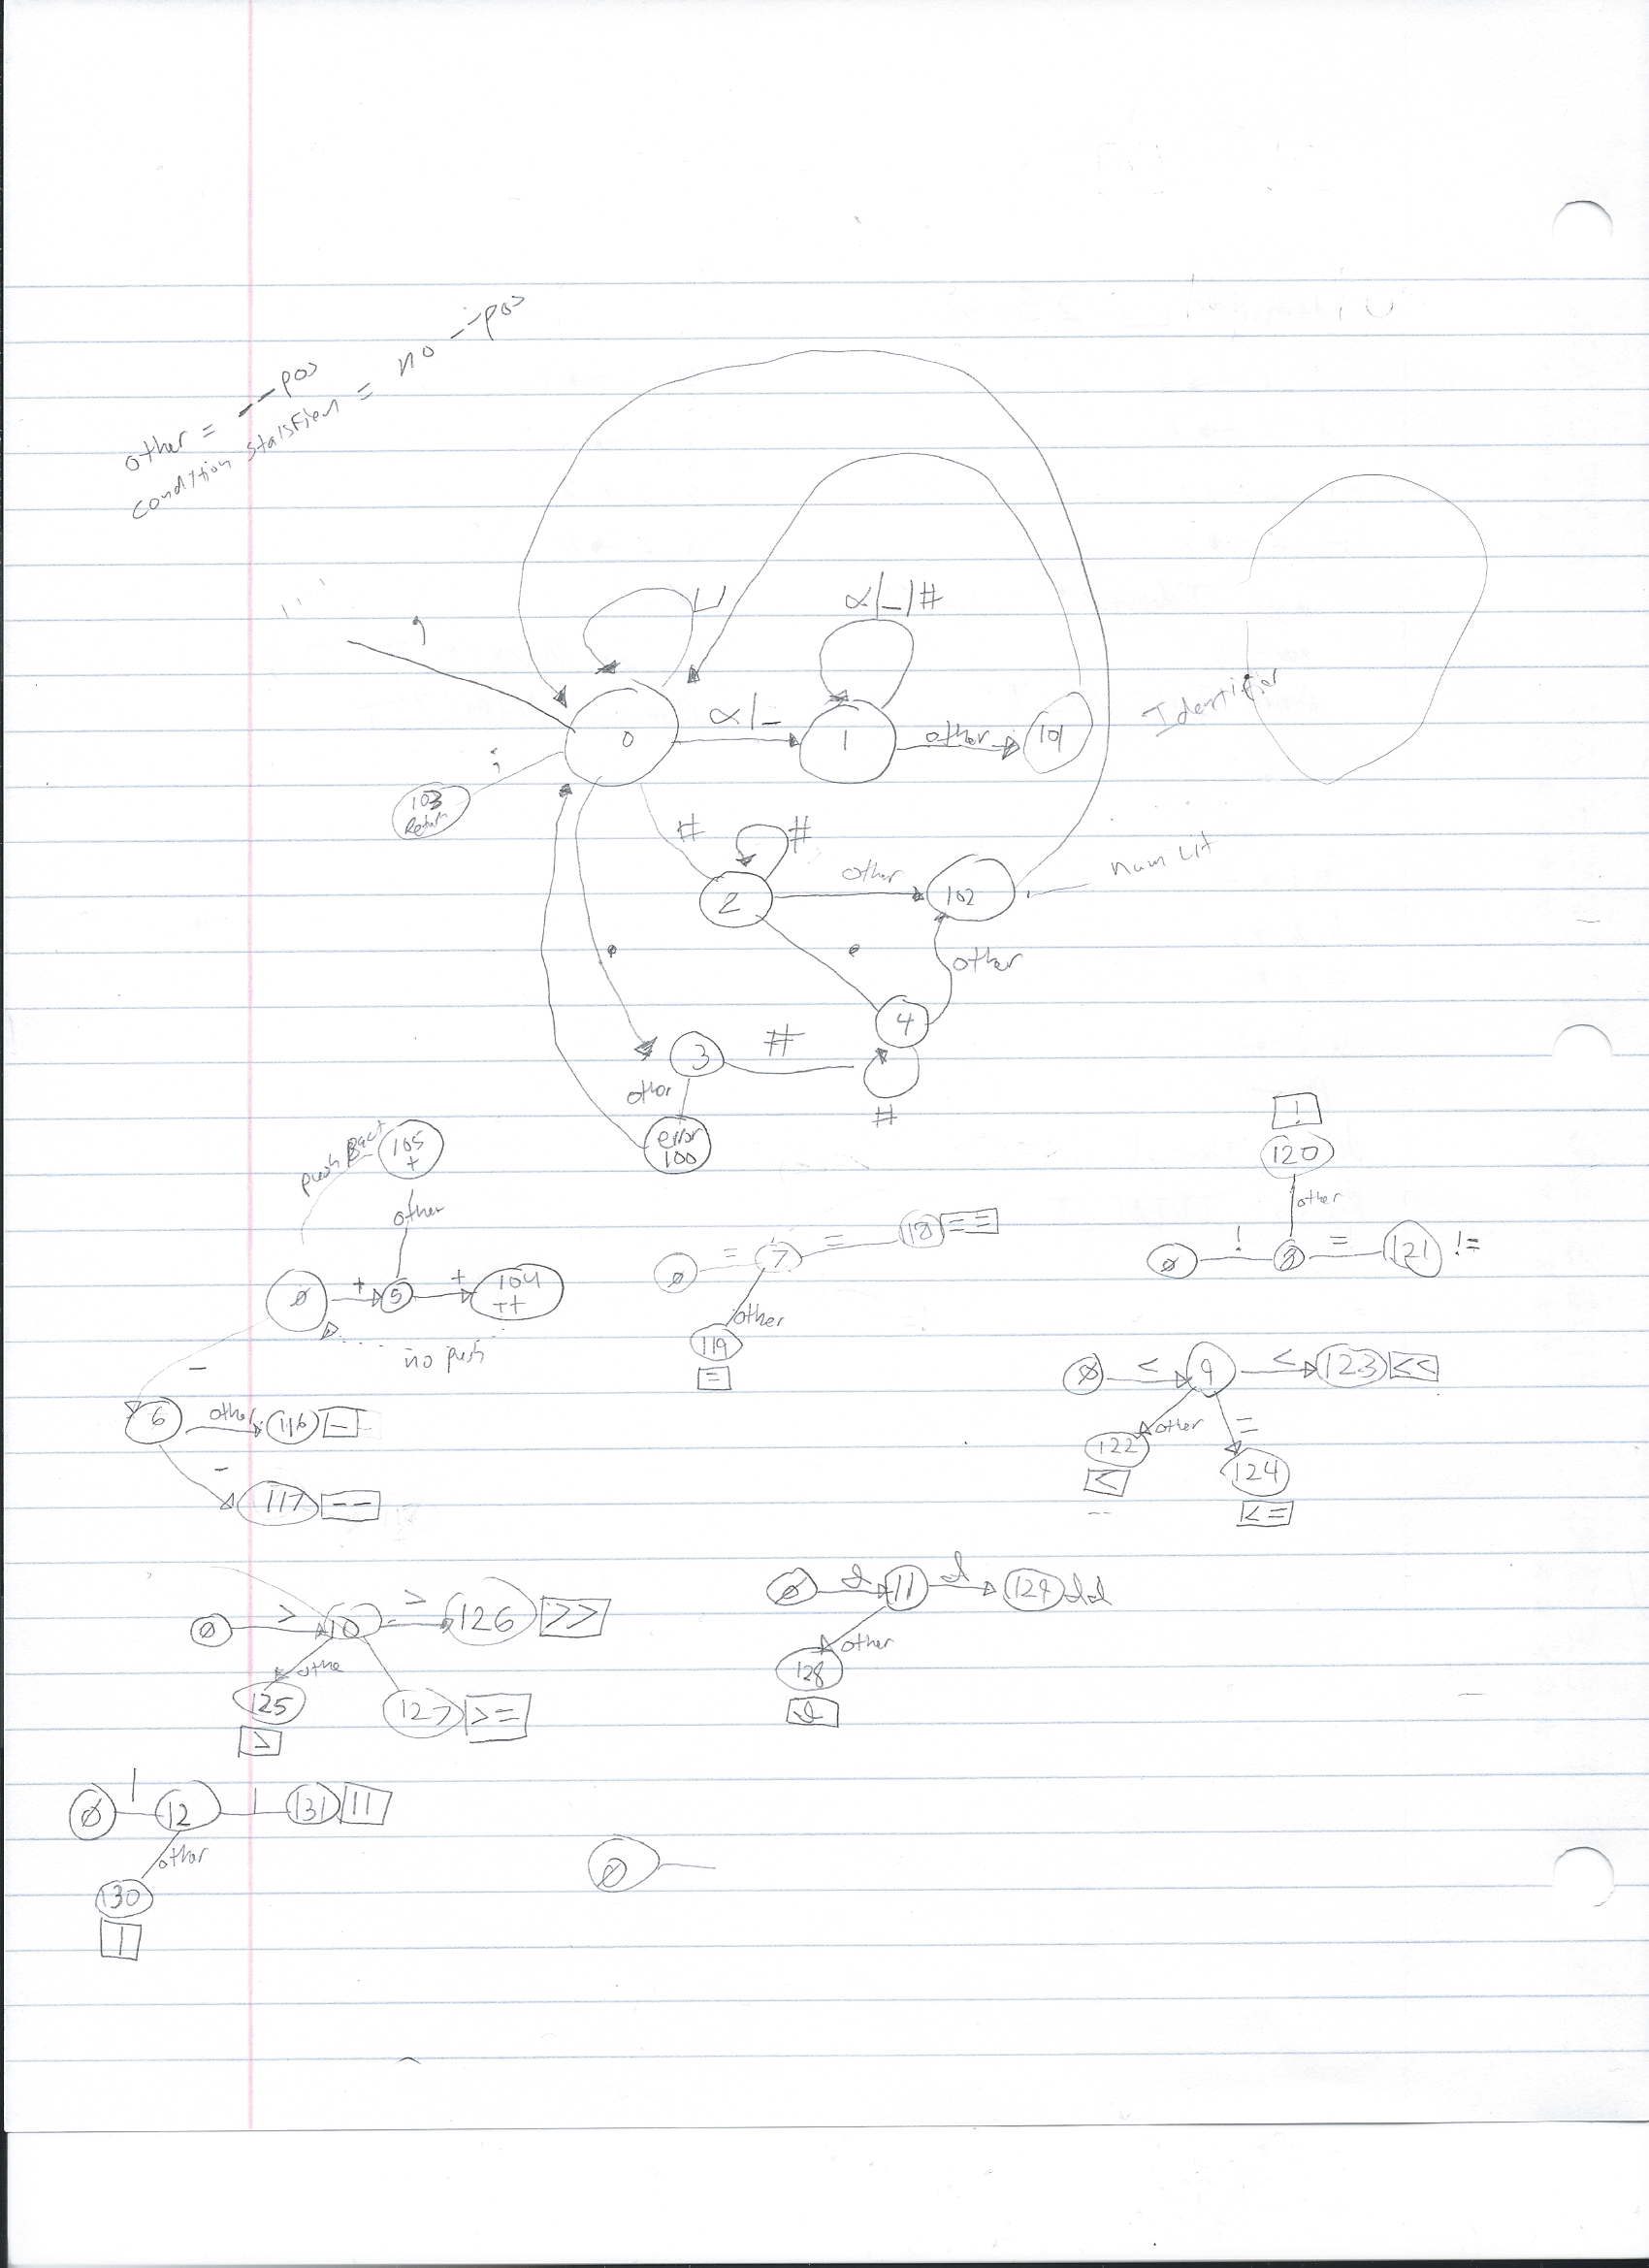 other = --pos
condition statsfien = no --pos
α|_|#
,
0
α|_
1
other
101
Identifier
;
103
Return
#
#
2
other
102
num Lit
.
.
other
4
3
#
other
#
error
100
push
105
+
other
0
+
5
+
104
++
no push
-
6
other
116
-
-
117
--
0
=
7
=
118
==
other
119
=
!
120
other
0
!
8
=
121
!=
0
<
9
<
123
<<
other
=
122
<
124
<=
0
>
10
>
126
>>
othe
125
>
127
>=
0
&
11
&
129
&&
other
128
&
0
|
12
|
131
||
other
130
|
0